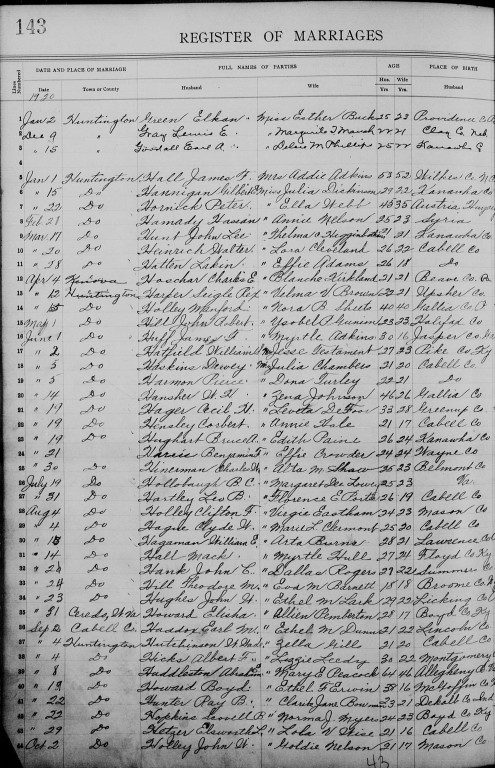 143
REGISTER OF MARRIAGES
Line Numbered DATE AND PLACE OF MARRIAGE FULL NAMES OF PARTIES AGE PLACE OF BIRTH
Town or County Husband Wife Hus. Yrs. Wife Yrs. Husband
1920
1 Jan 2 Huntington Green Elkan Miss Esther Buck 25 23 Providence
2 Dec 9 " Gray Lewis E. " 22 21 Clay Co Neb
3 " 15 " Goodall Earl A. " 25 Kanawha
5 Jan 1 Huntington Hall James F. Mrs Addie Adkins 53 52 Wilkes Co N.C.
" 15 Do Hannigan Gilbert Miss Julia Dickinson 29 22 Kanawha Co
" 22 Do Hornick Peter " Ella Webb 40 35 Austria
Feb 21 Do Hamady Hassan " Annie Nelson 25 23 Syria
Mar 17 Do Hunt John Lee " Thelma 21 21 Kanawha Co
" 20 Do Heinrich Walter " Lora Cleveland 26 22 Cabell Co
" 28 Do Hatten Lakin " Effie Adams 26 18 Do
Apr 4 Kenova Hoschar Charles E. " Blanche Kirkland 21 21
" 12 Huntington Harper Seigle " Velma V Brown 22 21 Upshur Co
" 15 Do Holley Manford " Nora B Sheets 40 40 Gallia Co
May 1 Do Hill John Albert " Ysobel 23 22 Halifax Co
June 1 Do Huff James F. " Myrtle Adkins 30 16 Jasper Co
" 2 Do Hatfield William " Jesse Testament 27 23 Pike Co Ky
" 5 Do Haskins Dewey " Julia Chambers 21 20 Cabell Co
" 5 Do Harmon Pierce " Dona Turley 22 21 Do
" 14 Do Hansher W. H. " Zena Johnson 46 26 Gallia Co
" 19 Do Hager Cecil H. " 33 28 Greenup Co
" 19 Do Hensley Corbert " Annie Hale 21 17 Cabell Co
" 19 Do Hughart Bruce " Edith Paine 26 24 Kanawha Co
" 21 Harris Benjamin F. " Effie Crowder 24 24 Wayne Co
" 30 Do Hinerman Charles " Alta M. Shaw 25 23 Belmont Co
July 19 Do Hollobaugh B. C. " Margaret Lowry 25 23 Va.
" 31 Do Hartley Leo B. " Florence E 26 19 Cabell Co
Aug 4 Do Holley Clifton F. " Virgie Eastham 24 23 Mason Co
" 4 Do Hague Clyde H. " Marie L. Clermont 25 20 Cabell Co
" 15 Do Hagaman William E. " Arta Burns 28 21 Lawrence Co
" 14 Do Hall Mack " Myrtle Hull 27 24 Floyd Co Ky
" 21 Do Hank John C. " Dallas Rogers 29 22 Summers Co
" 24 Do Hill Theodore M. " Eva M Barnett 18 18 Broome Co
" 23 Do Hughes John H. " Ethel M Lark 29 22 Licking Co
" 31 Ceredo, W.Va Howard Elisha " Allien Pemberton 28 17 Boyd Co Ky
Sep 2 Cabell Co. Haddox Earl " Ethel M 21 22 Lincoln Co
" 4 Huntington Hutchinson " Zella Gill 21 20 Cabell Co
" 4 Do Hicks Albert F. " Leedy 30 22 Montgomery
" 8 Do Huddleston " Mary E. Peacock 64 46 Allegheny Co
" 19 Do Howard Boyd " Ethel F. Ervin 37 16 Co
" 22 Do Hunter Ray B. " Clara Jane 23 21 Dekalb Co
" 22 Do Hopkins Lowell B. " Norma J. Myers 24 23 Boyd Co Ky
" 29 Do Hetzer Elsworth L. " Lola V 21 16 Cabell Co
Oct 2 Do Holley John W. " Goldie Nelson 21 17 Mason Co
43